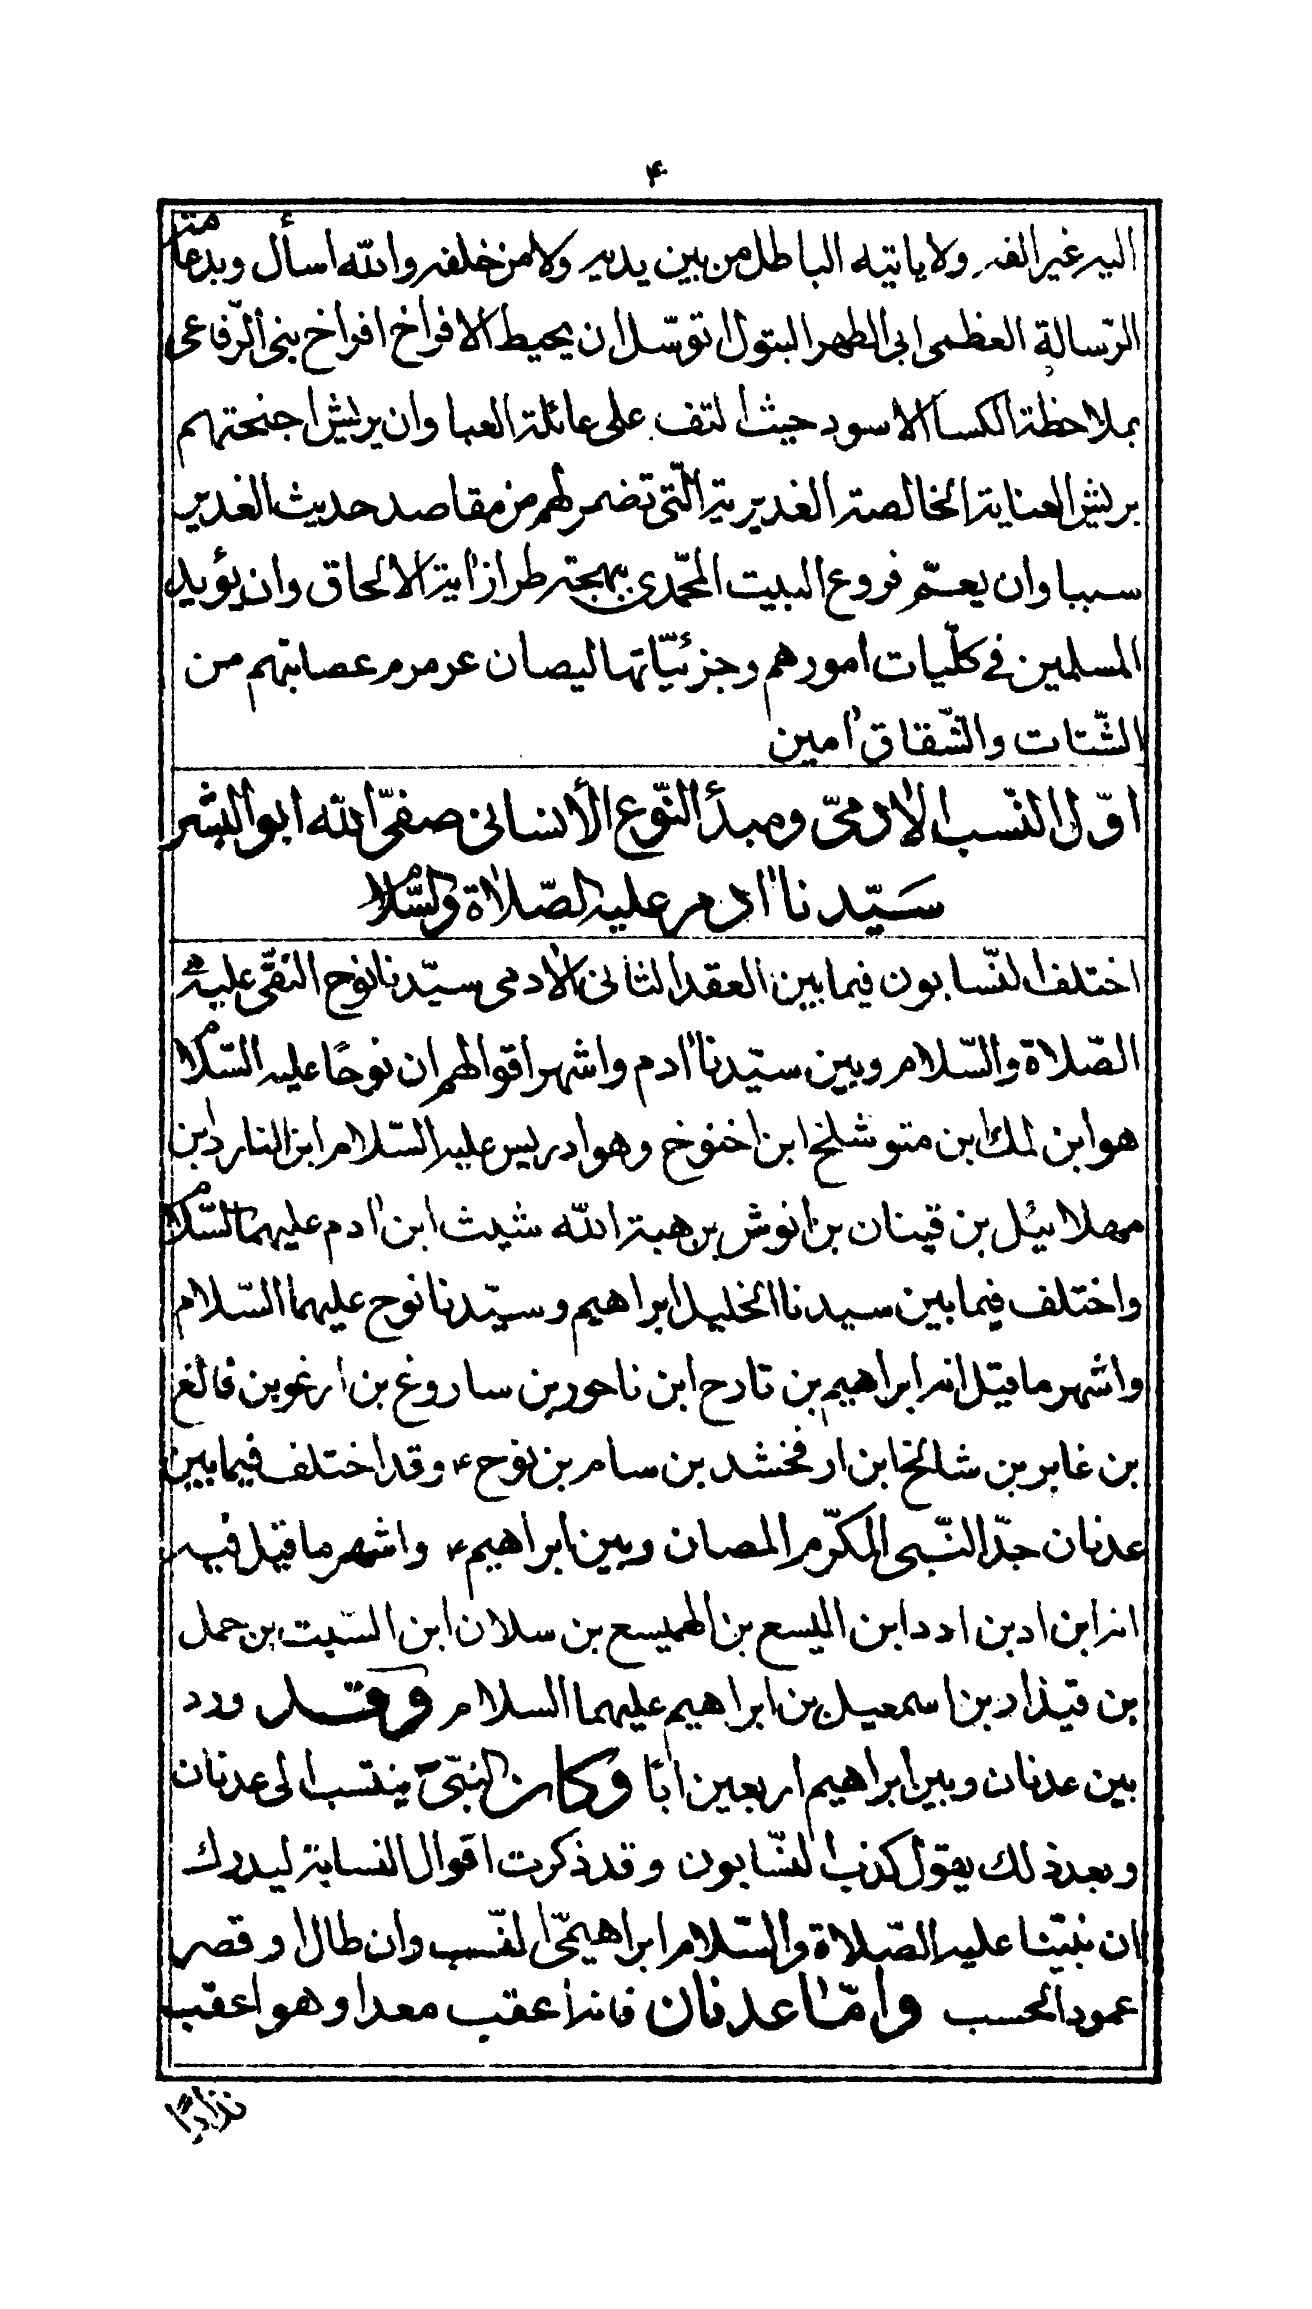 ۴
اليه غير الفه ولا ياتيه الباطل من بين يديه ولا من خلفه والله اسأل وبدعامة
الرّسالة العظمى ابى الطهر البتول اتوسّل ان يحيط الافراخ افراخ بنى الرّفاعى
بملاحظة الكسا الاسود حيث التف على عائلة العبا وان يريش اجنحتهم
بريش العناية الخالصة الغديرية الّتى تضمر لهم من مقاصد حديث الغدير
سببا وان يعمّ فروع البيت المحمّدى ببهجة طراز اية الالحاق وان يؤيد
المسلمين فى كلّيات امورهم وجزئيّاتها ليصان عرمرم عصابتهم من
الشّتات والشّقاق امين
اوّل النّسب الادمىّ ومبدأ النّوع الأنسانى صفىّ الله ابو البشر
سيّدنا ادم عليه الصّلاة والسّلام
اختلف النّسابون فيما بين العقد الثانى الادمى سيّدنا نوح النقىّ عليه
الصّلاة والسّلام وبين سيّدنا ادم واشهر اقوالهم ان نوحًا عليه السّلام
هو ابن لمك ابن متوشلخ ابن اخنوخ وهو ادريس عليه السّلام ابن اليارد ابن
مهلائيل بن قينان بن انوش بن هبة الله شيث ابن ادم عليهما السّلام
واختلف فيما بين سيدنا الخليل ابراهيم وسيّدنا نوح عليهما السّلام
واشهر ما قيل انه ابراهيم بن تارح ابن ناحور بن ساروغ بن ارغو بن فالغ
بن غابر بن شالخ ابن ارفخشد بن سام بن نوح ء وقد اختلف فيما بين
عدنان جدّ النّبى المكرّم المصان وبين ابراهيم ء واشهر ما قيل فيه
انه ابن اد بن ادد ابن اليسع بن الهميسع بن سلان ابن السّبت بن حمل
بن قيذار بن اسمعيل بن ابراهيم عليهما السلام وقد ورد
بين عدنان وبين ابراهيم اربعين ابًا وكان النبىّ ينتسب الى عدنان
وبعد ذلك يقول كذب النسّابون وقد ذكرت اقوال النسابة ليدرك
ان نبيّنا عليه الصّلاة والسّلام ابراهيمىّ النّسب وان طال او قصر
عمود الحسب وامّا عدنان فانه اعقب معدا وهو اعقب
نزارًا